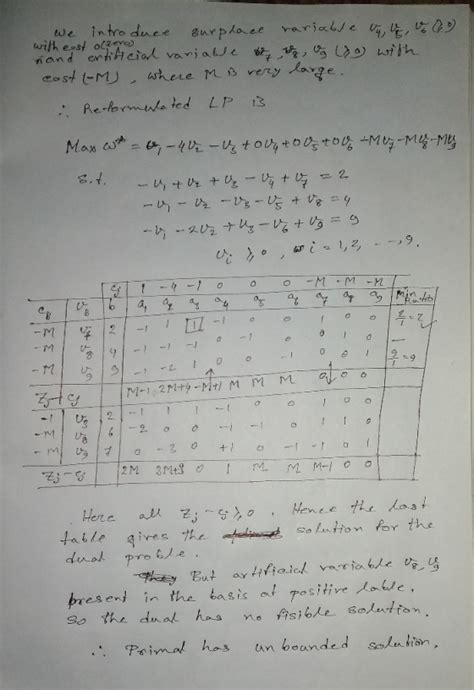 We introduce surplace variable v4, v5, v6 (≥0)
with cost 0(zero)
and artificial variable v7, v8, v9 (≥0) with
cost (-M), where M is very large.
∴ Re-formulated LP is
Max w* = v1 - 4v2 - v3 + 0v4 + 0v5 + 0v6 - Mv7 - Mv8 - Mv9
s.t. -v1 + v2 + v3 - v4 + v7 = 2
-v1 - v2 - v3 - v5 + v8 = 4
-v1 - 2v2 + v3 - v6 + v9 = 9
vi ≥ 0, i = 1, 2, - - -, 9.
Cj 1 -4 -1 0 0 0 -M -M -M Min
CB VB b a1 a2 a3 a4 a5 a6 a7 a8 a9 Ratio
-M v7 2 -1 1 1 -1 0 0 1 0 0 2/1 = 2
-M v8 4 -1 -1 -1 0 -1 0 0 1 0 —
-M v9 9 -1 -2 1 0 0 -1 0 0 1 9/1 = 9
Zj - Cj M-1 2M+4 -M+1 M M M 0 0 0
-1 v3 2 -1 1 1 -1 0 0 1 0 0
-M v8 6 -2 0 0 -1 -1 0 1 1 0
-M v9 7 0 -3 0 +1 0 -1 -1 0 1
Zj - Cj 2M 3M+3 0 1 M M M-1 0 0
Here all Zj - Cj ≥ 0. Hence the last
table gives the solution for the
dual proble.
But artificial variable v8, v9
present in the basis at positive lable.
So the dual has no fisible solution.
∴ Primal has unbounded solution.